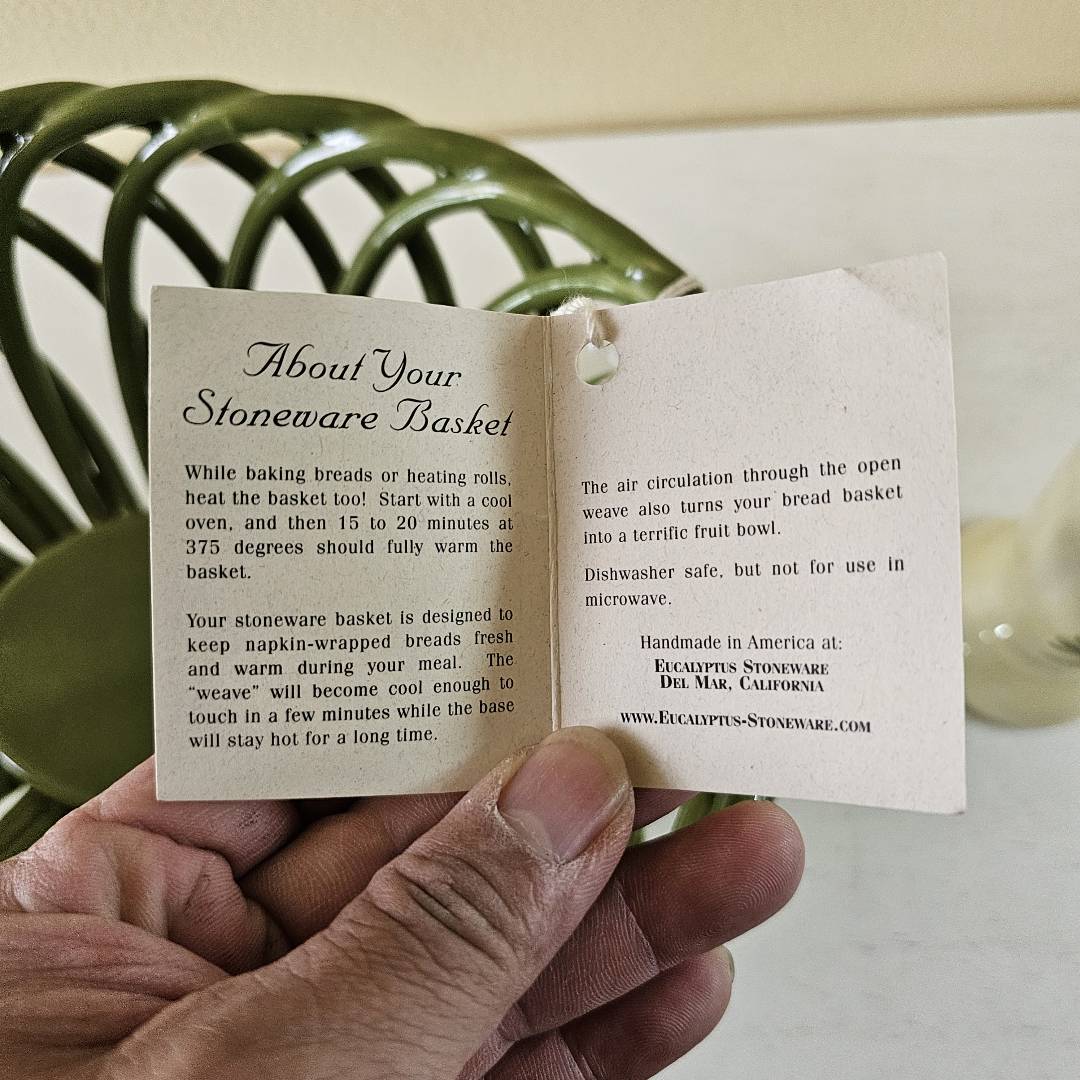 About Your
Stoneware Basket
While baking breads or heating rolls,
heat the basket too! Start with a cool
oven, and then 15 to 20 minutes at
375 degrees should fully warm the
basket.
Your stoneware basket is designed to
keep napkin-wrapped breads fresh
and warm during your meal. The
"weave" will become cool enough to
touch in a few minutes while the base
will stay hot for a long time.
The air circulation through the open
weave also turns your bread basket
into a terrific fruit bowl.
Dishwasher safe, but not for use in
microwave.
Handmade in America at:
EUCALYPTUS STONEWARE
DEL MAR, CALIFORNIA
WWW.EUCALYPTUS-STONEWARE.COM